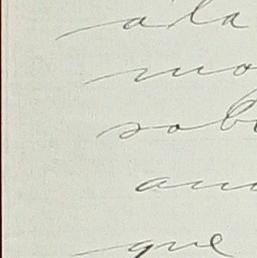 a la
mo
sob
an
que